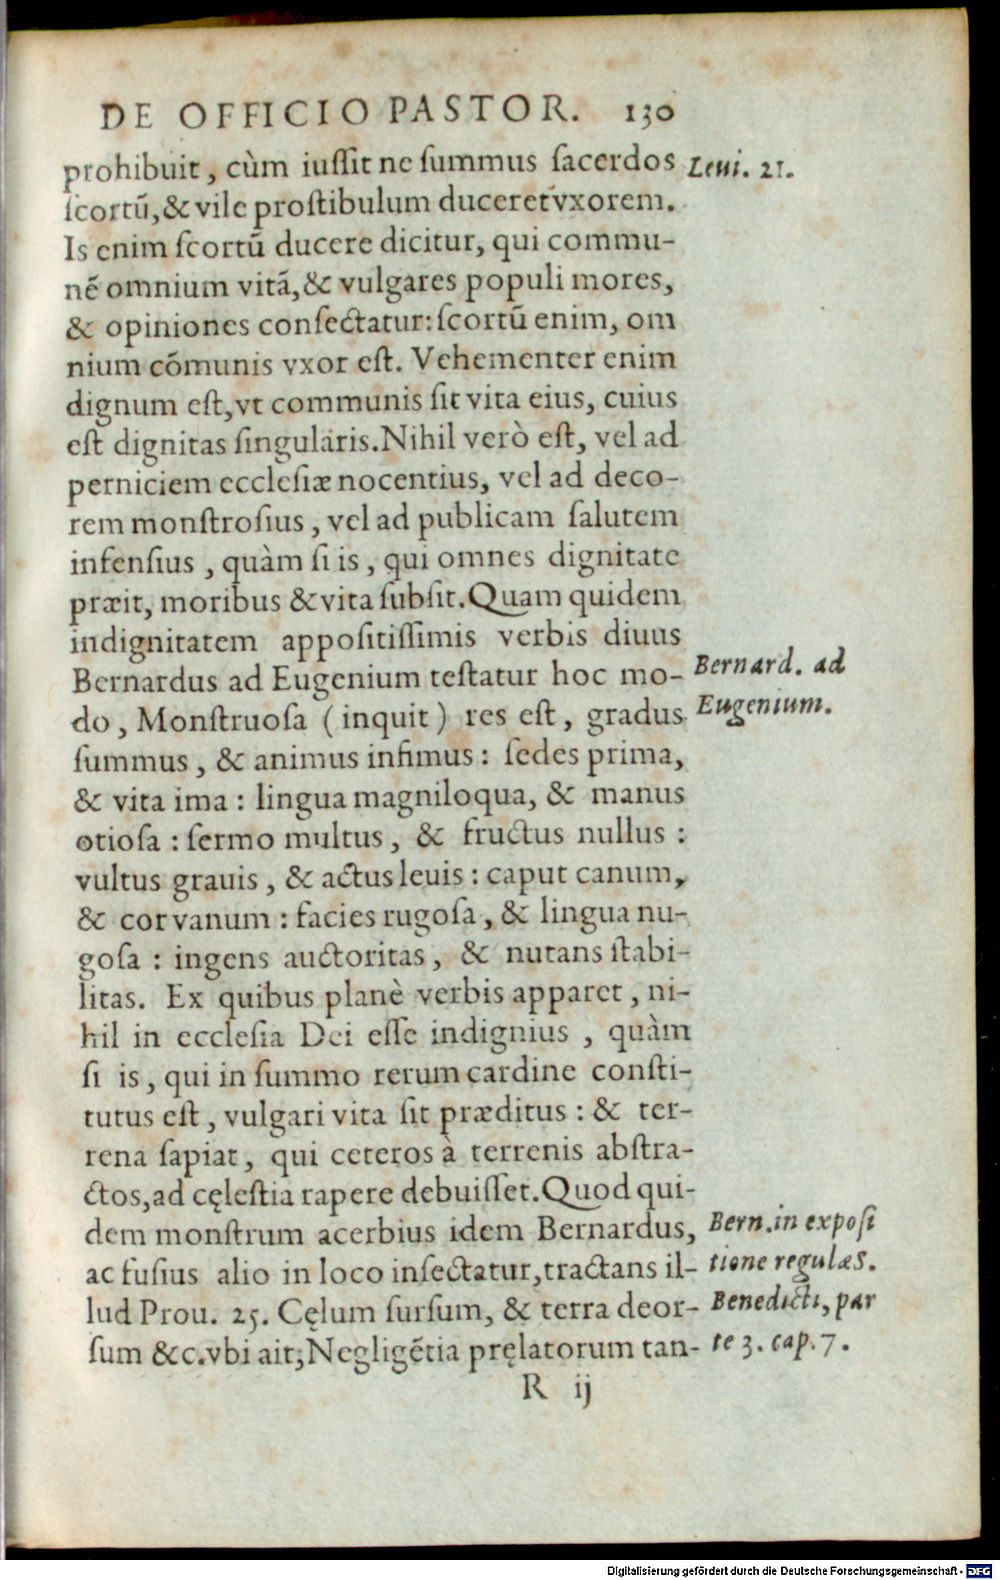 DE OFFICIO PASTOR. 130
prohibuit, cùm iuſſit ne ſummus ſacerdos
Leui. 21.
ſcortū, & vile proſtibulum duceret vxorem.
Is enim ſcortū ducere dicitur, qui commu-
nē omnium vitā, & vulgares populi mores,
& opiniones conſectatur: ſcortū enim, om
nium cōmunis vxor eſt. Vehementer enim
dignum eſt, vt communis ſit vita eius, cuius
eſt dignitas ſingularis. Nihil verò eſt, vel ad
perniciem eccleſiæ nocentius, vel ad deco-
rem monſtroſius, vel ad publicam ſalutem
infenſius, quàm ſi is, qui omnes dignitate
præit, moribus & vita ſubſit. Quam quidem
indignitatem appoſitiſſimis verbis diuus
Bernardus ad Eugenium teſtatur hoc mo-
Bernard. ad
do, Monſtruoſa (inquit) res eſt, gradus
Eugenium.
ſummus, & animus infimus: ſedes prima,
& vita ima: lingua magniloqua, & manus
otioſa: ſermo multus, & fructus nullus:
vultus grauis, & actus leuis: caput canum,
& cor vanum: facies rugoſa, & lingua nu-
goſa: ingens auctoritas, & nutans ſtabi-
litas. Ex quibus planè verbis apparet, ni-
hil in eccleſia Dei eſſe indignius, quàm
ſi is, qui in ſummo rerum cardine conſti-
tutus eſt, vulgari vita ſit præditus: & ter-
rena ſapiat, qui ceteros à terrenis abſtra-
ctos, ad cęleſtia rapere debuiſſet. Quod qui-
dem monſtrum acerbius idem Bernardus,
Bern. in expoſi
ac fuſius alio in loco inſectatur, tractans il-
tione regulæ S.
lud Prou. 25. Cęlum ſurſum, & terra deor-
Benedicti, par
ſum &c. vbi ait; Negligētia pręlatorum tan-
te 3. cap. 7.
R ij
Digitalisierung gefördert durch die Deutsche Forschungsgemeinschaft - DFG